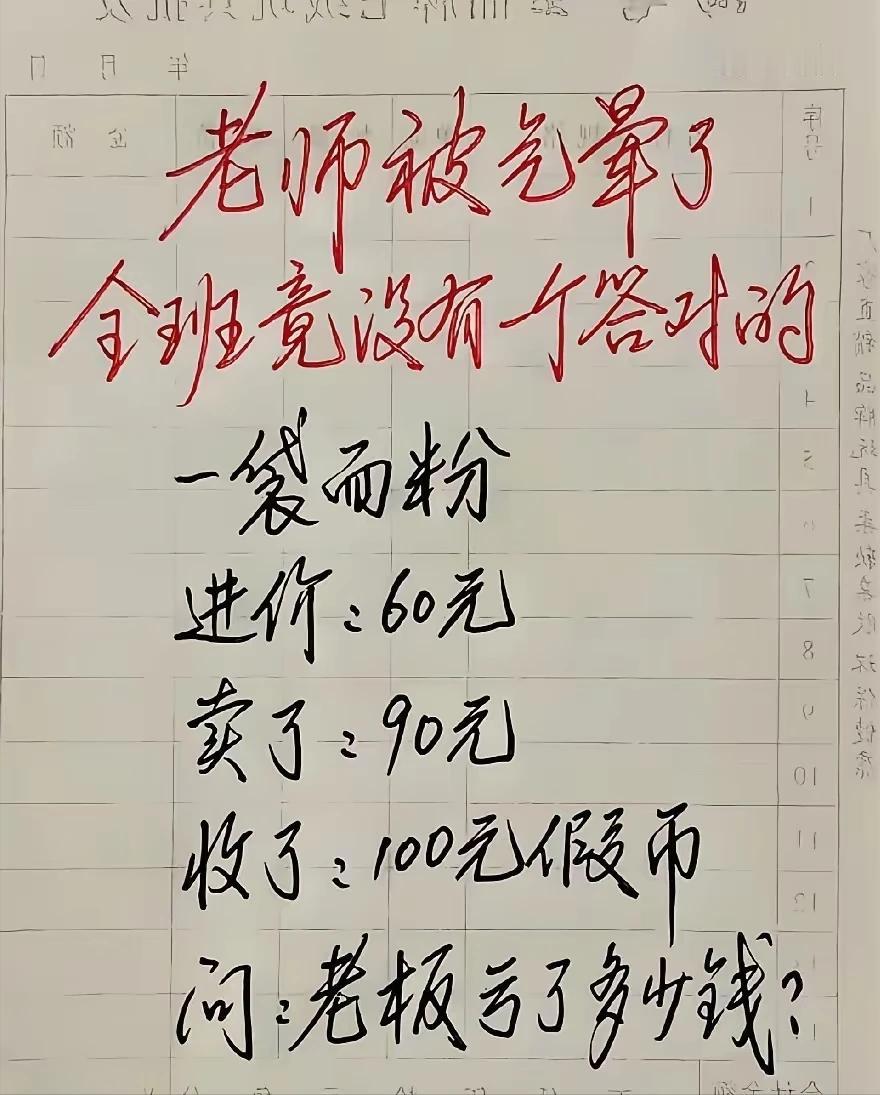 老师被气晕了
全班竟没有一个答对的
一袋面粉
进价:60元
卖了:90元
收了:100元假币
问:老板亏了多少钱?